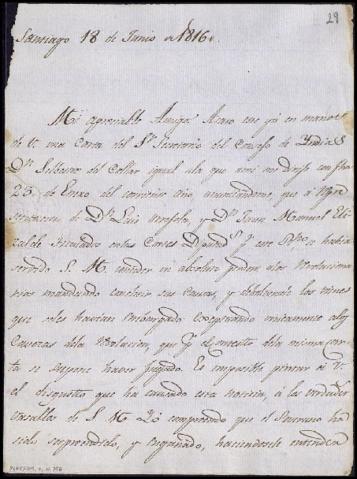 29
Santiago 18 de Junio de 1816.
Mi apreciable Amigo: Acaso este ya en manos
de V. una Carta del Sr. Secretario del Consejo de Indias
Dn. Silbestre del Collar igual ala que a mi me dirije con fha
23 de Enero del corriente año anunciandome que a
de Dn. Luis Urrejola, y Dn. Juan Manuel Eli-
zalde Diputados en las Cortes Dipdos. por este Reyno a havia
serbido S. M. conceder un absoluto perdon alos Revoluciona-
rios mandando concluir sus Causas, y debolviendo los vienes
que se les havian embargado exceptuando unicamente alos
Caveras dela Revolucion, que por el contexto dela misma car-
ta se supone haver fugado. Es imposible pintar a V.
el disgusto que ha causado esta noticia, á los verdaderos
vasallos de S. M. Yo comprendo que el Soverano ha
sido sorprendido, y engañado, haciendosele entender